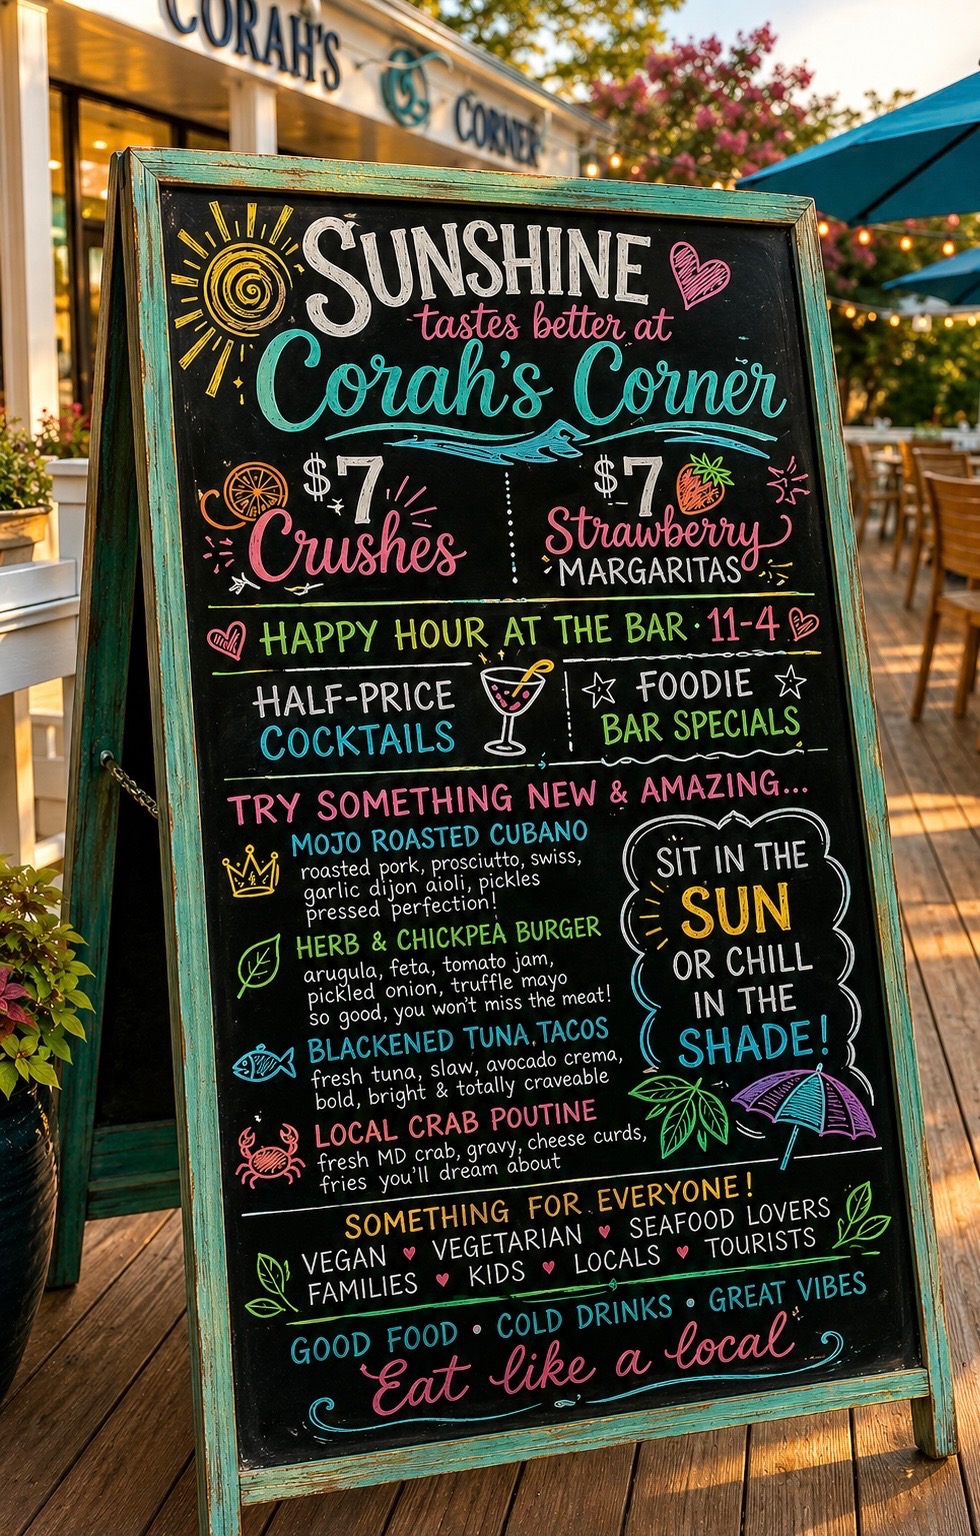 CORAH'S CORNER
SUNSHINE
tastes better at
Corah's Corner
$7
Crushes
$7
Strawberry
MARGARITAS
HAPPY HOUR AT THE BAR · 11-4
HALF-PRICE
COCKTAILS
FOODIE
BAR SPECIALS
TRY SOMETHING NEW & AMAZING...
MOJO ROASTED CUBANO
roasted pork, prosciutto, swiss,
garlic dijon aioli, pickles
pressed perfection!
HERB & CHICKPEA BURGER
arugula, feta, tomato jam,
pickled onion, truffle mayo
so good, you won't miss the meat!
BLACKENED TUNA TACOS
fresh tuna, slaw, avocado crema,
bold, bright & totally craveable
LOCAL CRAB POUTINE
fresh MD crab, gravy, cheese curds,
fries you'll dream about
SIT IN THE
SUN
OR CHILL
IN THE
SHADE!
SOMETHING FOR EVERYONE!
VEGAN ♥ VEGETARIAN ♥ SEAFOOD LOVERS
FAMILIES ♥ KIDS ♥ LOCALS ♥ TOURISTS
GOOD FOOD • COLD DRINKS • GREAT VIBES
Eat like a local